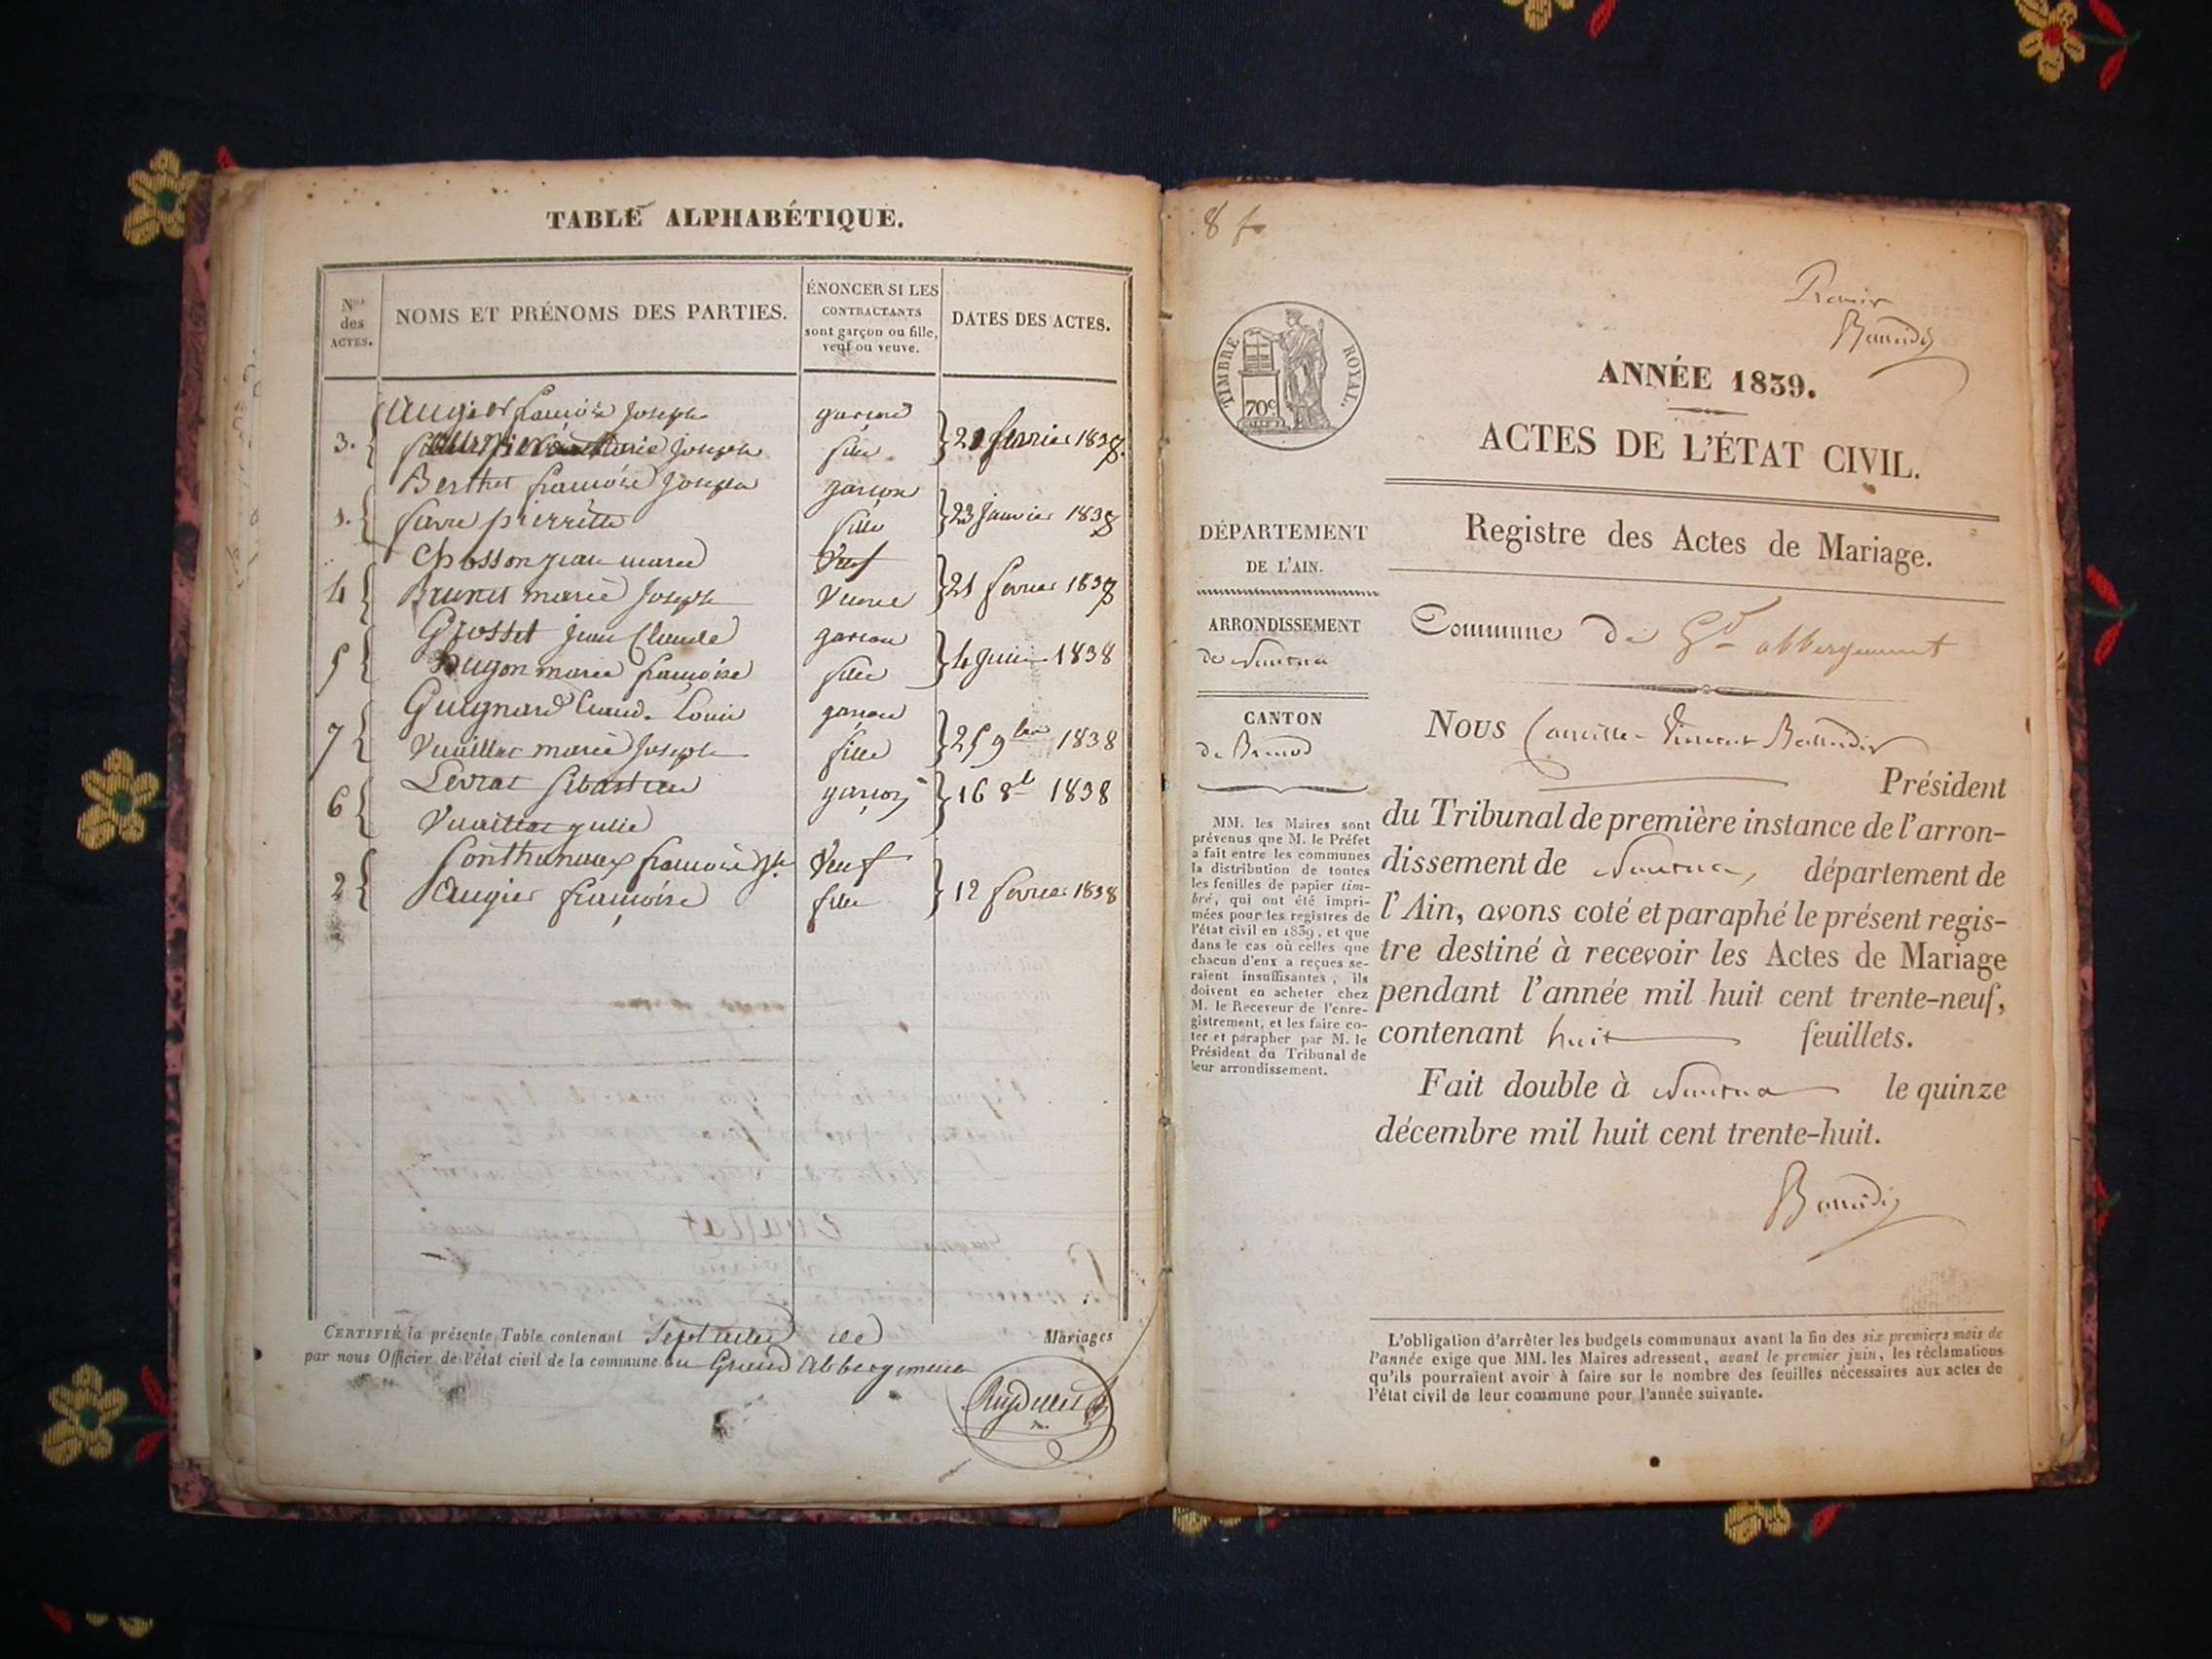 TABLE ALPHABÉTIQUE.
Nos des ACTES.
NOMS ET PRÉNOMS DES PARTIES.
ÉNONCER SI LES CONTRACTANTS sont garçon ou fille, veuf ou veuve.
DATES DES ACTES.
3. Augier françoise Joseph garçon
Marie Joseph fille 21 fevrier 1838.
Berthet françoise Joseph garçon
1. favre pierrette fille 23 Janvier 1838
Chosson jean marie Veuf
4 Brunet marie Joseph Veuve 21 fevrier 1838
Grosset jean Claude garçon
5 Hugon marie françoise fille 4 juin 1838
Guignard Claude Louis garçon
7 Vuaillat marie Joseph fille 25 9bre 1838
Levrat sébastien garçon
6 Vuaillat julie 16 8b 1838
Conthurieux françois Jh Veuf
2 Augier françoise fille 12 fevrier 1838
CERTIFIÉ la présente Table contenant Sept actes de Mariages
par nous Officier de l'état civil de la commune du Grand Abbergement
8 f
Premier
Baudin
TIMBRE ROYAL.
70c
ANNÉE 1839.
ACTES DE L'ÉTAT CIVIL.
Registre des Actes de Mariage.
DÉPARTEMENT
DE L'AIN.
ARRONDISSEMENT
de Nantua
CANTON
de Brenod
MM. les Maires sont
prévenus que M. le Préfet
a fait entre les communes
la distribution de toutes
les feuilles de papier tim-
bré, qui ont été impri-
mées pour les registres de
l'état civil en 1839, et que
dans le cas où celles que
chacun d'eux a reçues se-
raient insuffisantes, ils
doivent en acheter chez
M. le Receveur de l'enre-
gistrement, et les faire co-
ter et parapher par M. le
Président du Tribunal de
leur arrondissement.
Commune de Gd abbergement
Nous Camille Vincent
Président
du Tribunal de première instance de l'arron-
dissement de Nantua, département de
l'Ain, avons coté et paraphé le présent regis-
tre destiné à recevoir les Actes de Mariage
pendant l'année mil huit cent trente-neuf,
contenant huit feuillets.
Fait double à Nantua le quinze
décembre mil huit cent trente-huit.
L'obligation d'arrêter les budgets communaux avant la fin des six premiers mois de
l'année exige que MM. les Maires adressent, avant le premier juin, les réclamations
qu'ils pourraient avoir à faire sur le nombre des feuilles nécessaires aux actes de
l'état civil de leur commune pour l'année suivante.